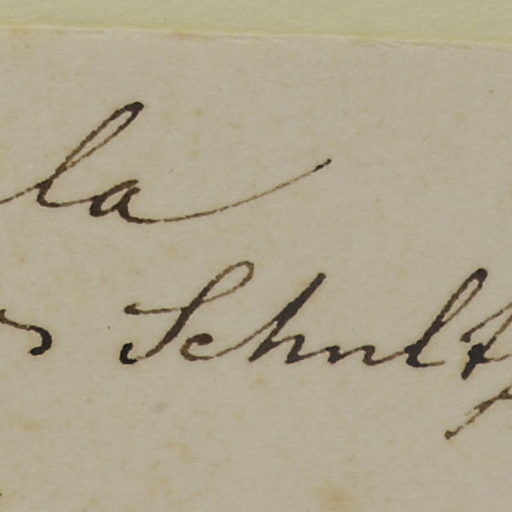 la
s Schultz